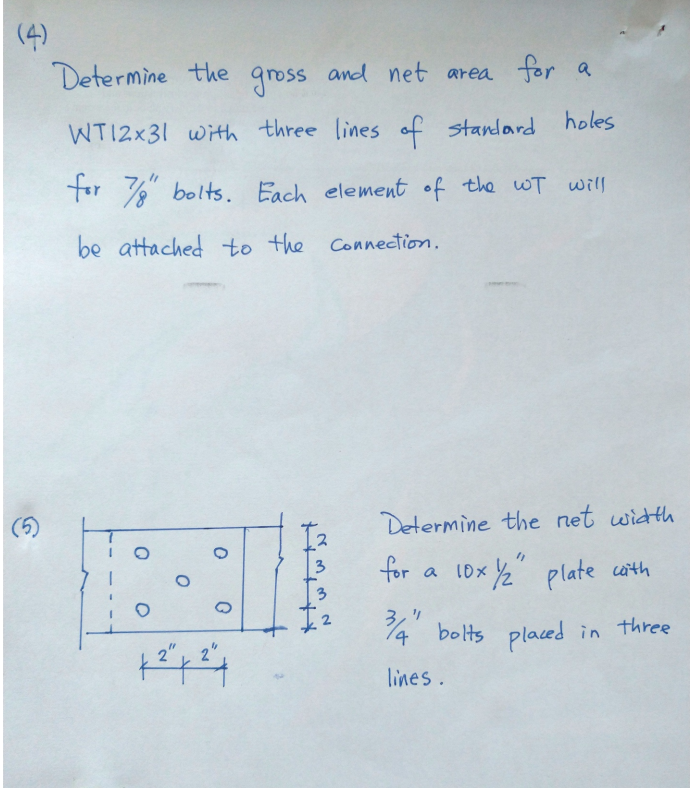 (4)
Determine the gross and net area for a
WT12x31 with three lines of standard holes
for 7/8" bolts. Each element of the WT will
be attached to the connection.
(5)
2
3
3
2
2" 2"
Determine the net width
for a 10x1/2" plate with
3/4" bolts placed in three
lines.